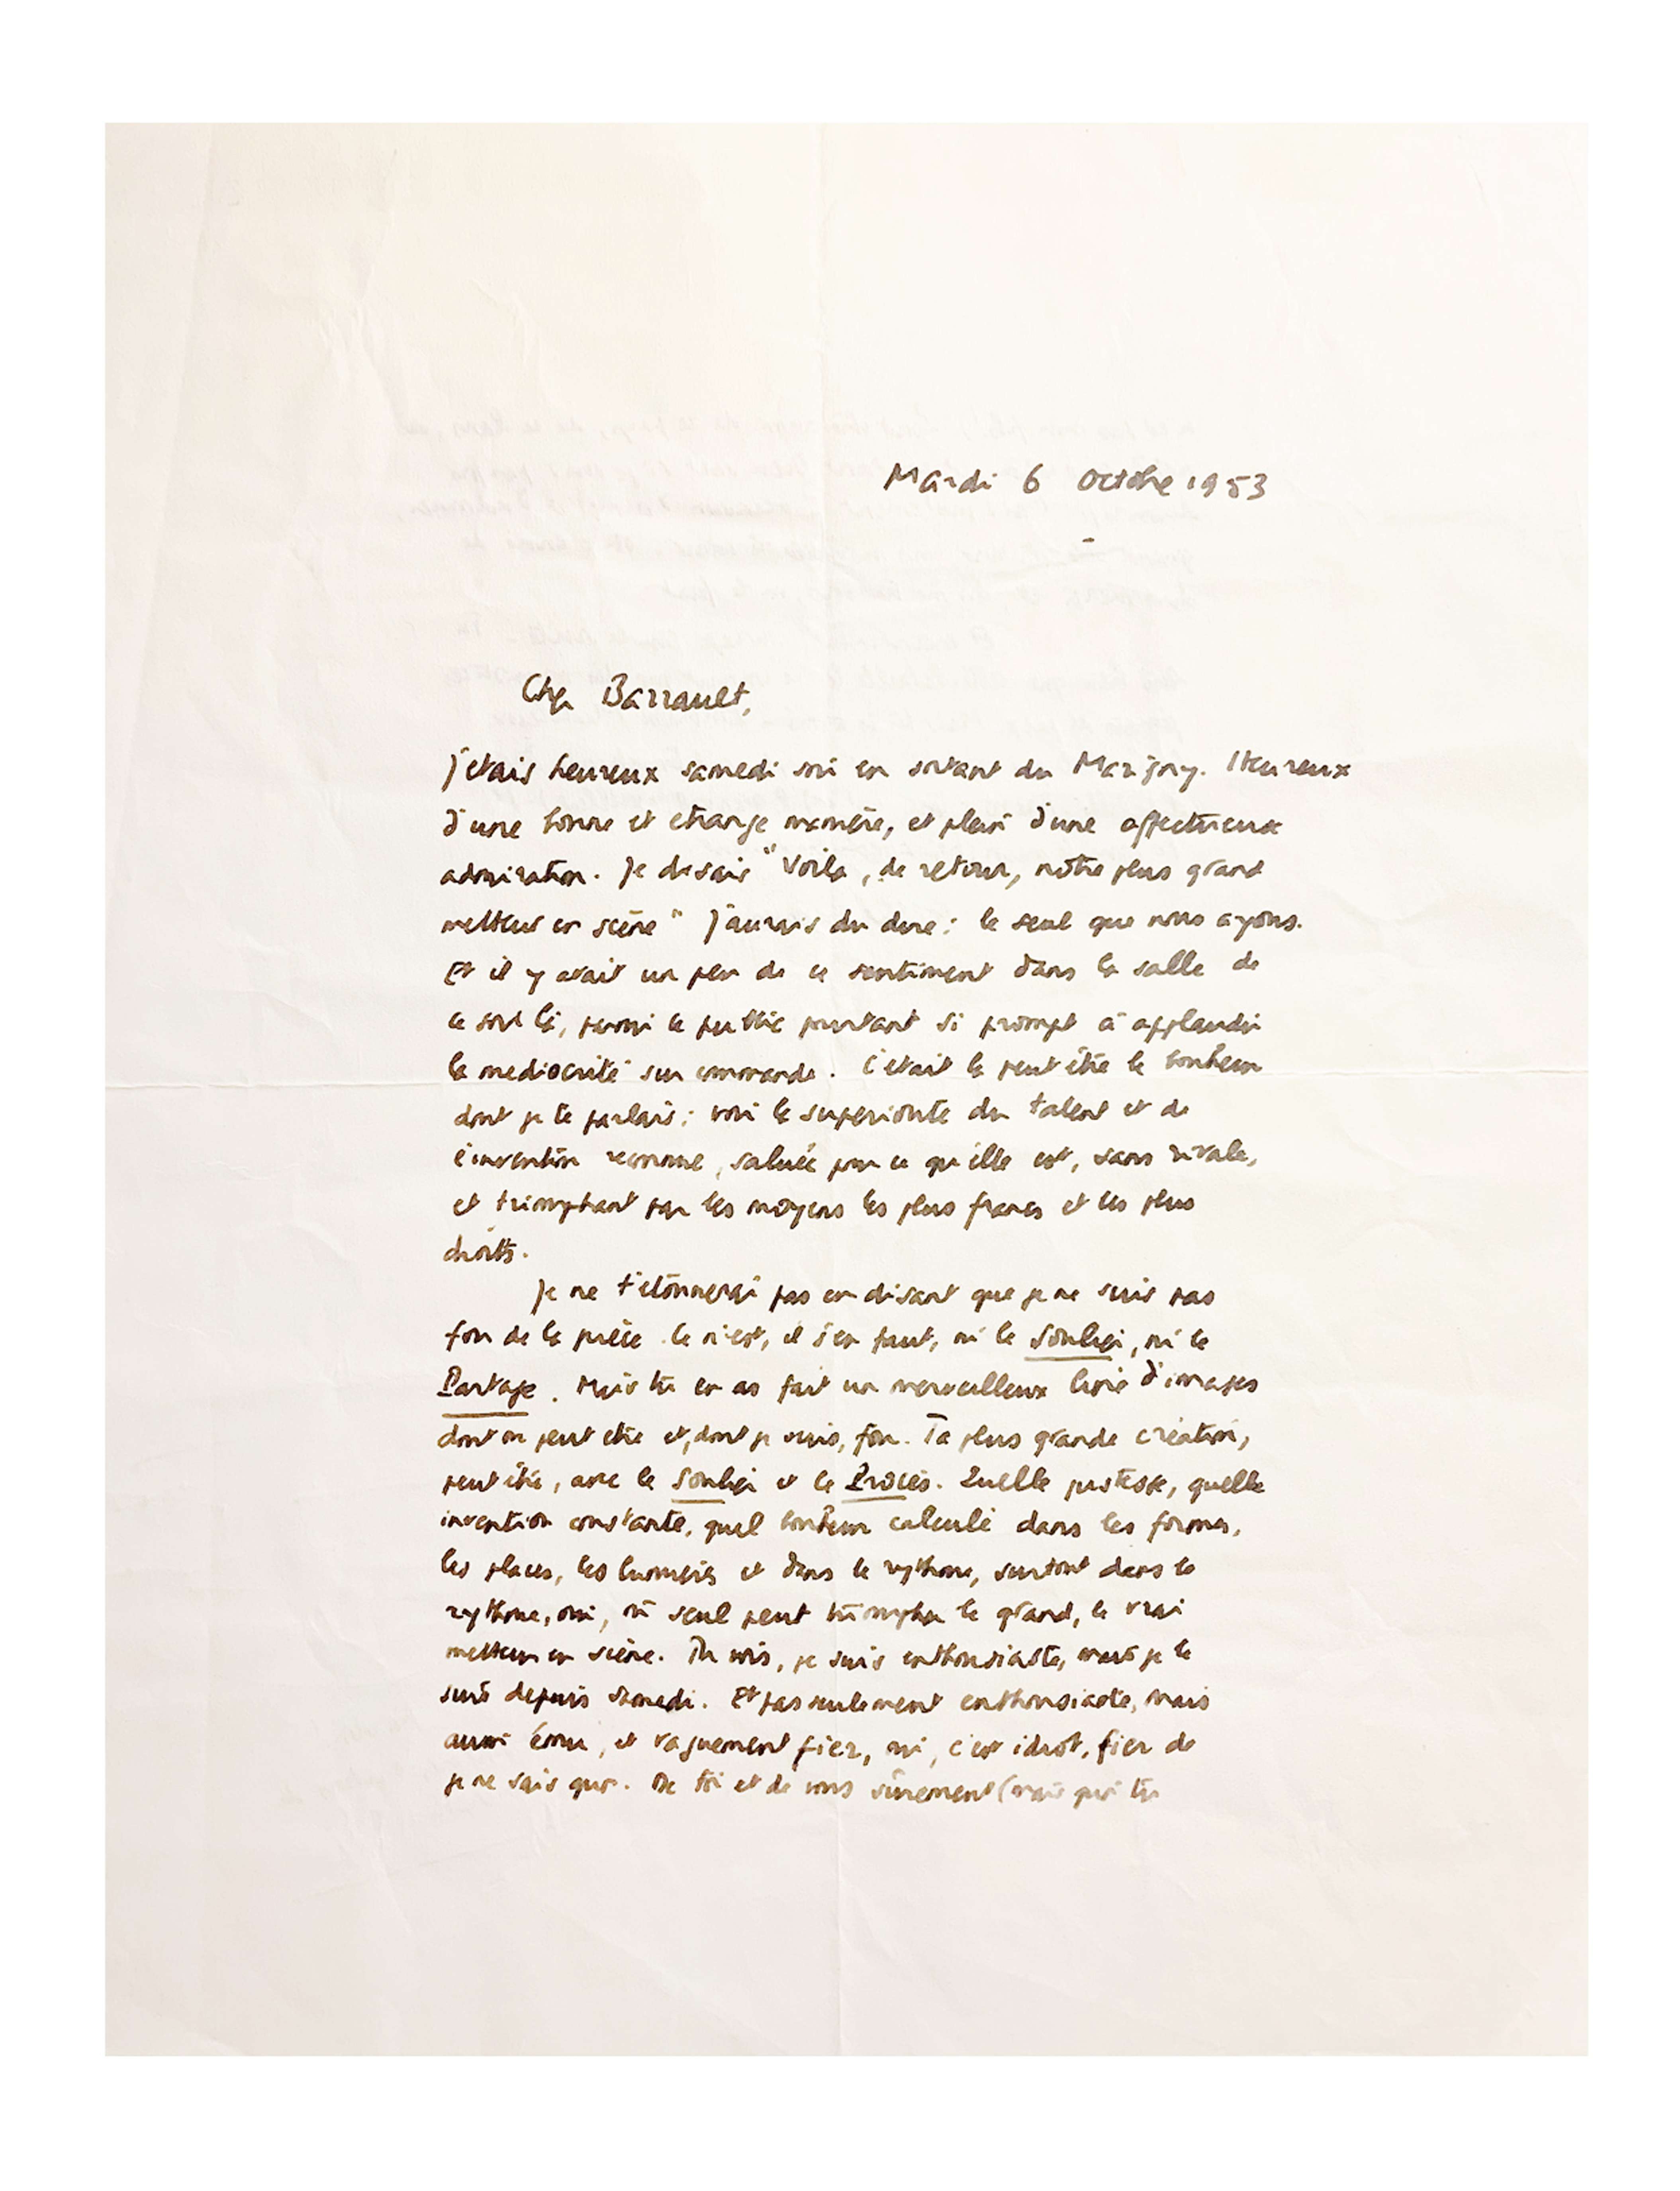 Mardi 6 Octobre 1953
Cher Barrault,
J'étais heureux samedi soir en sortant du Marigny. Heureux
d'une bonne et étrange manière, et plein d'une affectueuse
admiration. Je disais "Voilà, de retour, notre plus grand
metteur en scène" J'aurais du dire : le seul que nous ayons.
Et il y avait un peu de ce sentiment dans la salle de
ce soir là, parmi le public pourtant si prompt à applaudir
la médiocrité sur commande. C'était là peut être le bonheur
dont je te parlais : voir la supériorité du talent et de
l'invention reconnue, saluée pour ce qu'elle est, sans rivale,
et triomphant par les moyens les plus francs et les plus
droits.
Je ne t'étonnerai pas en disant que je ne suis pas
fou de la pièce. Ce n'est, il s'en faut, ni le Soulier, ni le
Partage. Mais tu en as fait un merveilleux livre d'images
dont on peut être et, dont je suis, fou. Ta plus grande création,
peut être, avec le Soulier et le Procès. Quelle justesse, quelle
invention constante, quel bonheur calculé dans les formes,
les places, les lumières et dans le rythme, surtout dans le
rythme, oui, où seul peut triompher le grand, le vrai
metteur en scène. Tu vois, je suis enthousiaste, mais je le
suis depuis samedi. Et pas seulement enthousiaste, mais
aussi ému, et vaguement fier, oui, c'est idiot, fier de
je ne sais quoi. De toi et de vous sûrement (mais quoi tu